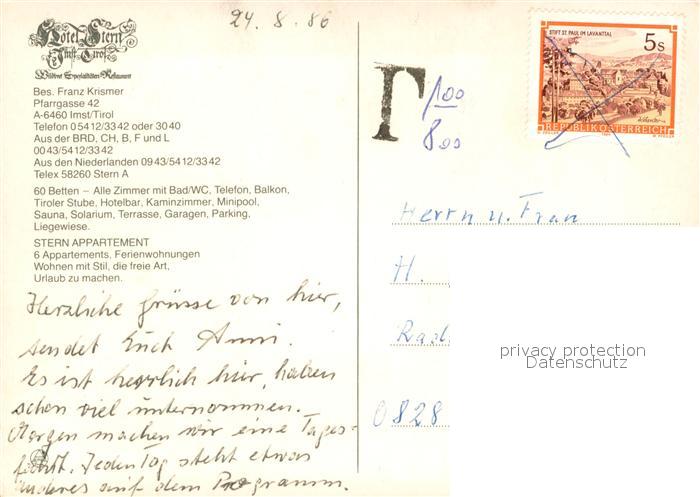 24.8.86
Hotel Stern
Imst Tirol
Wildbret Spezialitäten Restaurant
Bes. Franz Krismer
Pfarrgasse 42
A-6460 Imst/Tirol
Telefon 0 54 12/33 42 oder 30 40
Aus der BRD, CH, B, F und L
00 43/54 12/33 42
Aus den Niederlanden 09 43/54 12/33 42
Telex 58260 Stern A
60 Betten – Alle Zimmer mit Bad/WC, Telefon, Balkon,
Tiroler Stube, Hotelbar, Kaminzimmer, Minipool,
Sauna, Solarium, Terrasse, Garagen, Parking,
Liegewiese.
STERN APPARTEMENT
6 Appartements, Ferienwohnungen
Wohnen mit Stil, die freie Art,
Urlaub zu machen.
Herzliche Grüsse von hier,
sendet Euch Anni.
Es ist herrlich hier, haben
schon viel unternommen.
Morgen machen wir eine Tages-
fahrt. Jeden Tag steht etwas
anderes auf dem Programm.
STIFT ST. PAUL IM LAVANTTAL
5s
REPUBLIK ÖSTERREICH
T
100
800
Herrn u. Frau
H.
Rad
privacy protection
Datenschutz
0828